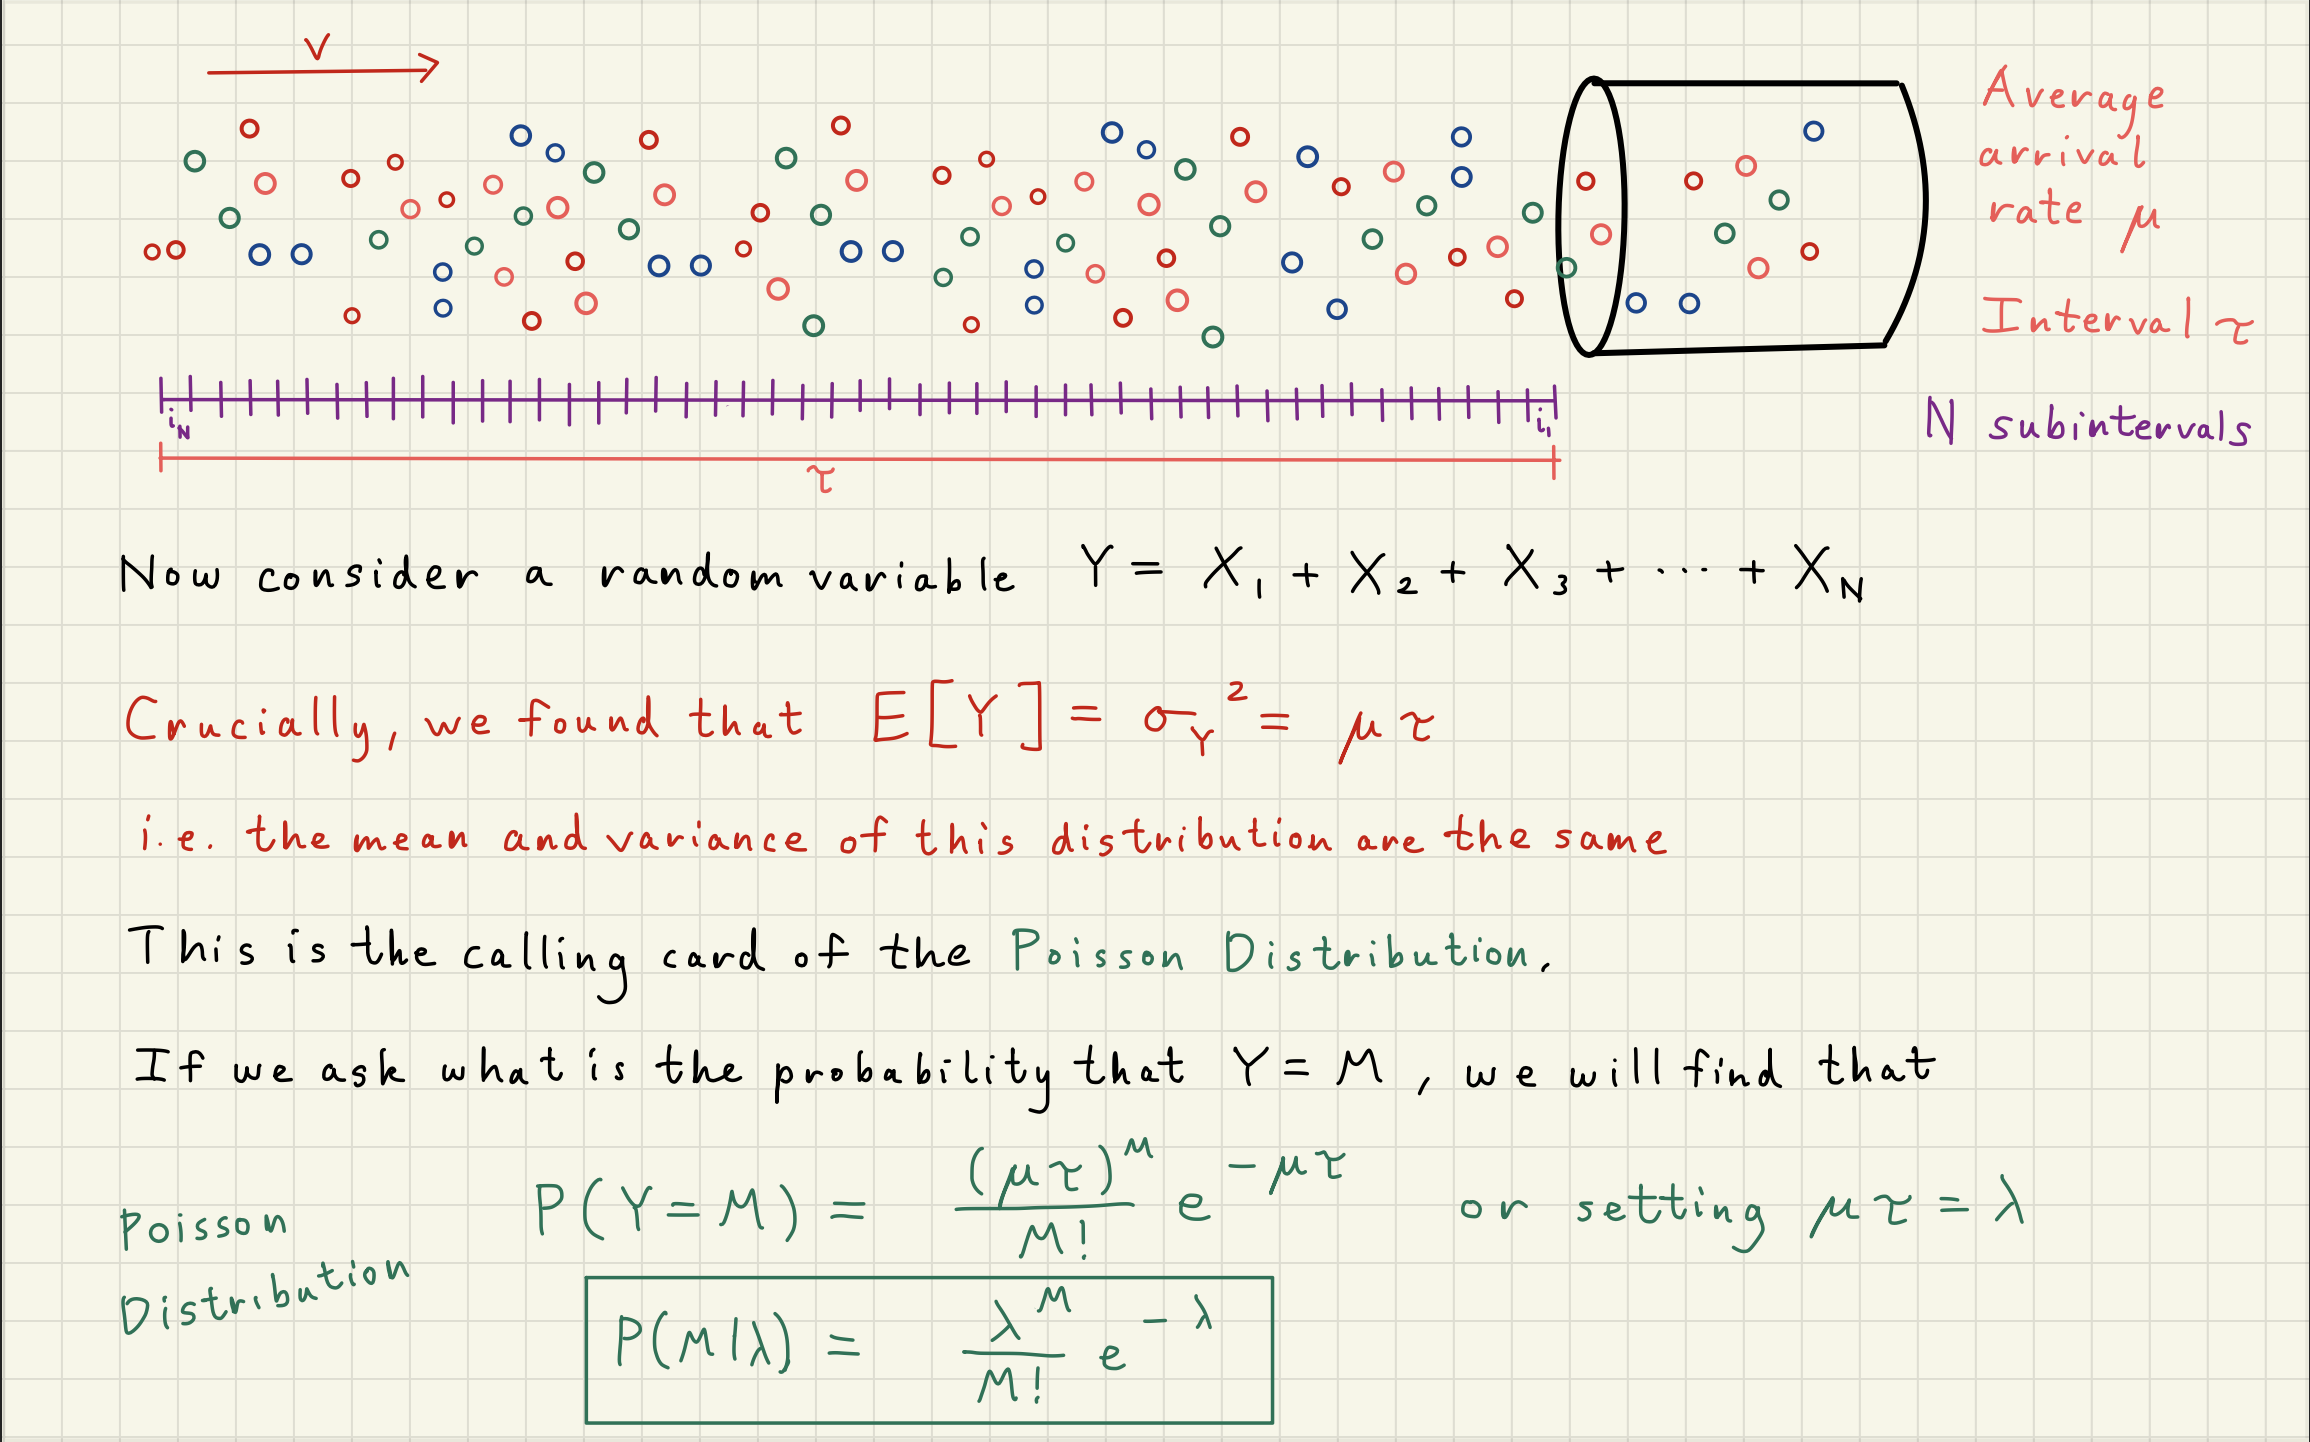 V
Average
arrival
rate μ
Interval τ
i_N i_1
N subintervals
τ
Now consider a random variable Y = X_1 + X_2 + X_3 + ... + X_N
Crucially, we found that E[Y] = σ_Y^2 = μτ
i.e. the mean and variance of this distribution are the same
This is the calling card of the Poisson Distribution.
If we ask what is the probability that Y = M, we will find that
Poisson
Distribution
P(Y = M) = (μτ)^M / M! e^{-μτ} or setting μτ = λ
P(M|λ) = λ^M / M! e^{-λ}